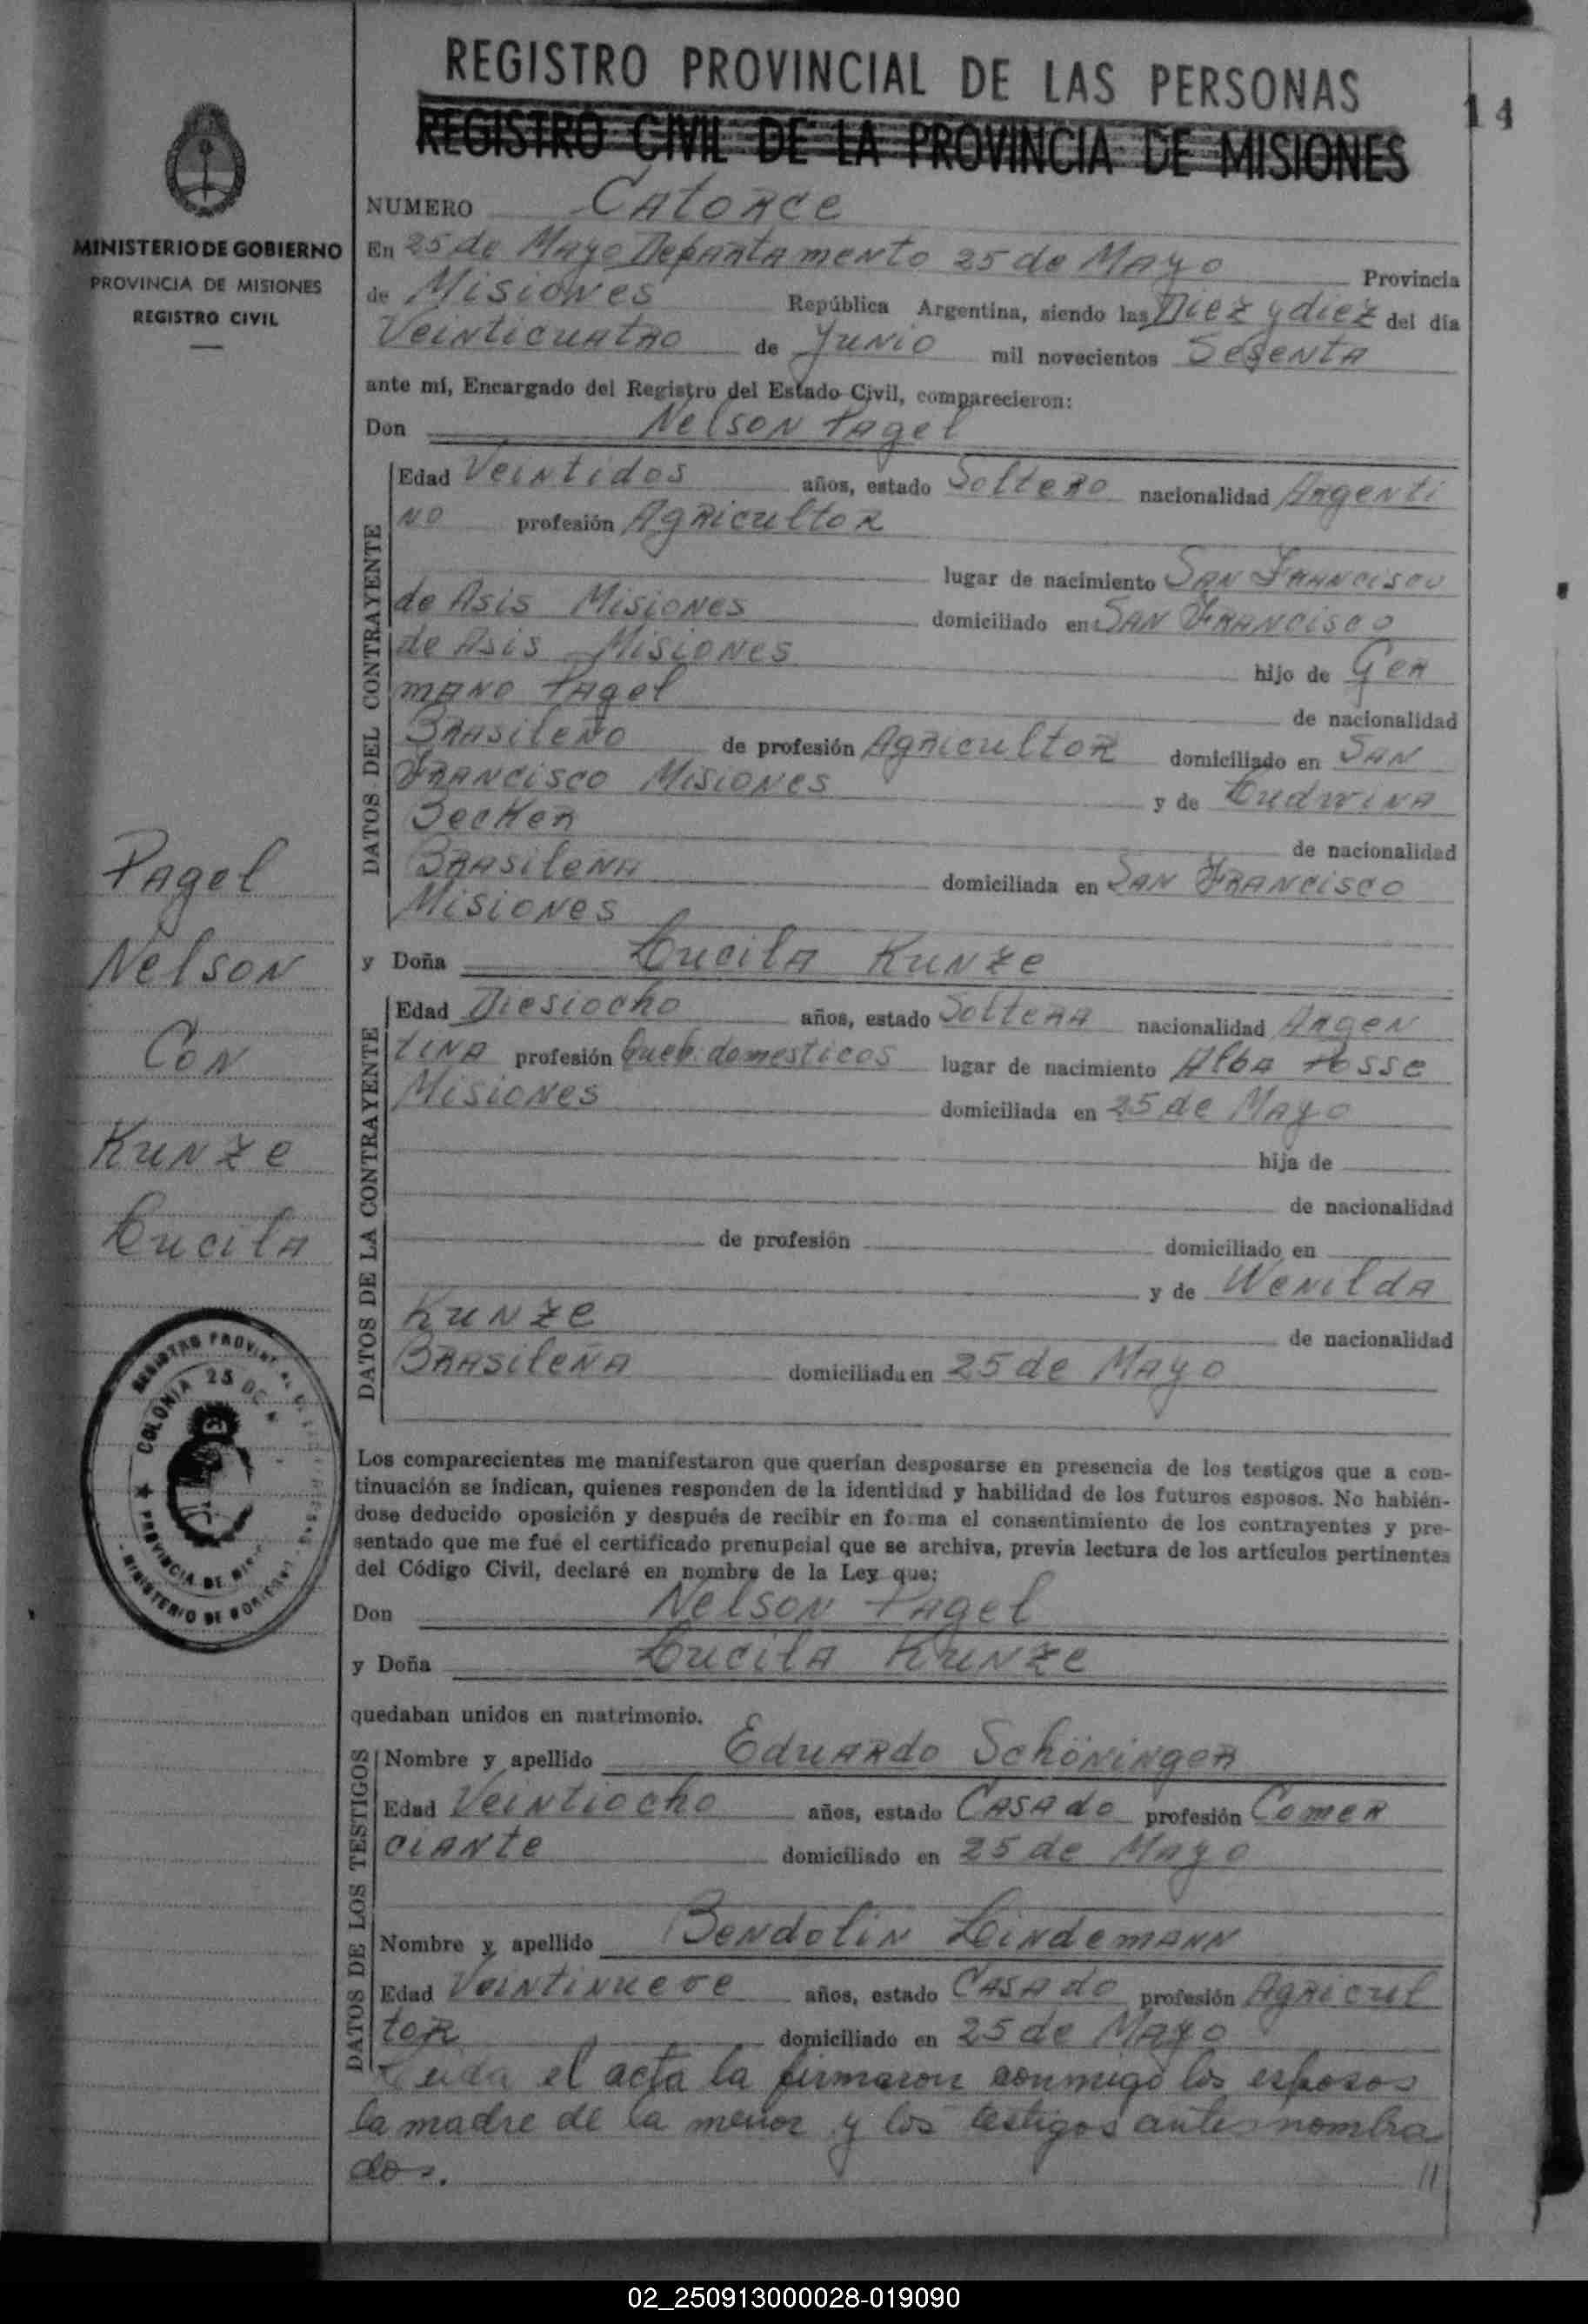 REGISTRO PROVINCIAL DE LAS PERSONAS
14
REGISTRO CIVIL DE LA PROVINCIA DE MISIONES
MINISTERIO DE GOBIERNO
PROVINCIA DE MISIONES
REGISTRO CIVIL
NUMERO Catorce
En 25 de Mayo Departamento 25 de Mayo Provincia
de Misiones República Argentina, siendo las Diez y diez del día
Veinticuatro de Junio mil novecientos Sesenta
ante mí, Encargado del Registro del Estado Civil, comparecieron:
Don Nelson Pagel
DATOS DEL CONTRAYENTE
Edad Veintidos años, estado Soltero nacionalidad Argenti
no profesión Agricultor
lugar de nacimiento San Francisco
de Asis Misiones domiciliado en San Francisco
de Asis Misiones hijo de Ger
mano Pagel de nacionalidad
Brasileño de profesión Agricultor domiciliado en San
Francisco Misiones y de Ludwina
Becker de nacionalidad
Brasileña domiciliada en San Francisco
Misiones
y Doña Lucila Kunze
DATOS DE LA CONTRAYENTE
Edad Diesiocho años, estado Soltera nacionalidad Argen
tina profesión Queh. domesticos lugar de nacimiento Alba Posse
Misiones domiciliada en 25 de Mayo
hija de
de nacionalidad
de profesión domiciliado en
y de Wenilda
Kunze de nacionalidad
Brasileña domiciliada en 25 de Mayo
Pagel
Nelson
Con
Kunze
Lucila
COLONIA 25 DE
MINISTERIO DE GOBIERNO
Los comparecientes me manifestaron que querían desposarse en presencia de los testigos que a con-
tinuación se indican, quienes responden de la identidad y habilidad de los futuros esposos. No habién-
dose deducido oposición y después de recibir en forma el consentimiento de los contrayentes y pre-
sentado que me fué el certificado prenupcial que se archiva, previa lectura de los artículos pertinentes
del Código Civil, declaré en nombre de la Ley que:
Don Nelson Pagel
y Doña Lucila Kunze
quedaban unidos en matrimonio.
DATOS DE LOS TESTIGOS
Nombre y apellido Eduardo Schöninger
Edad Veintiocho años, estado Casado profesión Comer
ciante domiciliado en 25 de Mayo
Nombre y apellido Bendolin Lindemann
Edad Veintinueve años, estado Casado profesión Agricul
tor domiciliado en 25 de Mayo
Leida el acta la firmaron conmigo los esposos
la madre de la menor y los testigos antes nombra
dos. //
02_250913000028-019090